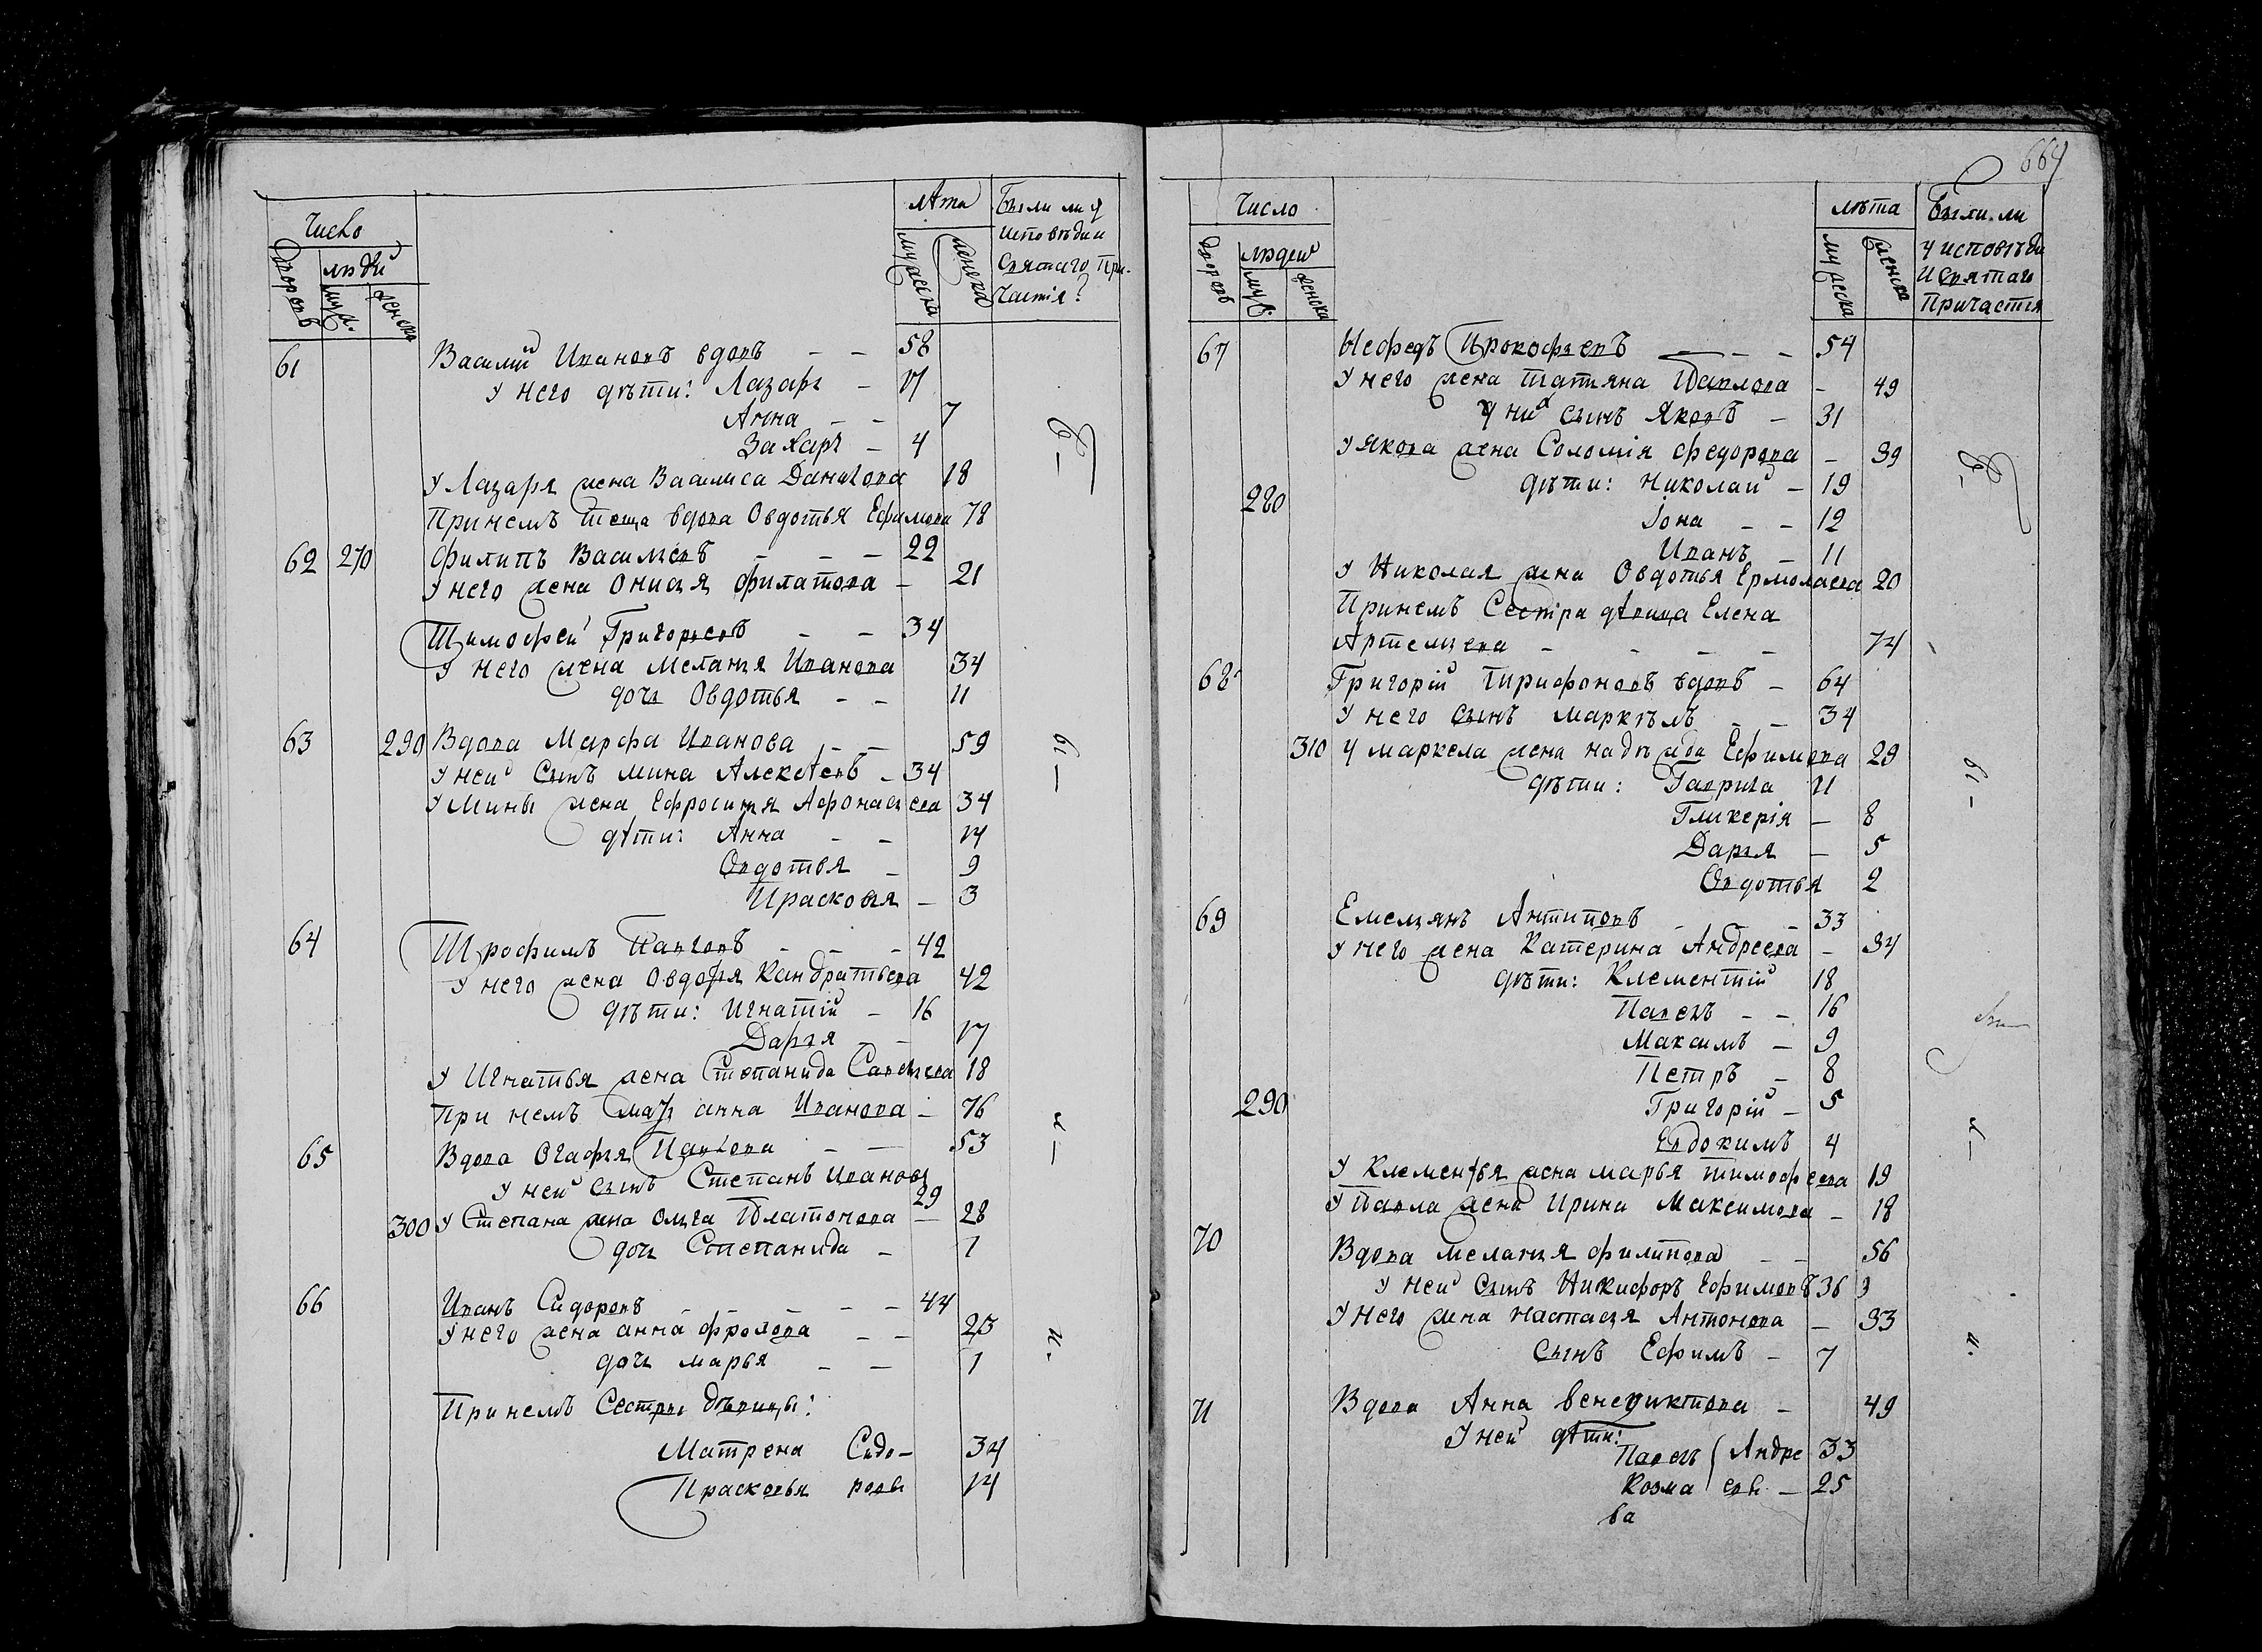 Число
дворовъ
людей
муж.
женска
лѣта
мужеска
женска
Были ли у
исповѣди и
Святаго При-
частія?
61 Василій Ивановъ вдовъ – – 58
у него дѣти: Лазарь – 17
Анна – – 7
Захаръ – 4
у Лазаря жена Василиса Данилова 18
При немъ теща вдова Овдотья Ефимова 78
62 270 Филипъ Васильевъ – – – 22
у него жена Онисья Филатова – 21
Тимофей Григорьевъ – – 34
у него жена Меланья Иванова 34
дочь Овдотья – – 11
63 290 Вдова Марфа Иванова – – 59
у ней сынъ Мина Алексѣевъ – 34
у Мины жена Ефросинья Афонасьева 34
дѣти: Анна – – 14
Овдотья – 9
Прасковья – 3
64 Трофимъ Павловъ – – – 42
у него жена Овдотья Кандратьева 42
дѣти: Игнатій – 16
Дарья – – 17
у Игнатья жена Степанида Савельева 18
При немъ мать Анна Иванова – 76
65 Вдова Огафья Павлова – – 53
у ней сынъ Степанъ Ивановъ 29
300 у Степана жена Ольга Платонова – 28
дочь Степанида – 1
66 Иванъ Сидоровъ – – – – – 44
у него жена Анна Фролова – – 23
дочь Марья – – 1
При немъ Сестры дѣвицы:
Матрена Сидо- 34
Прасковья ровы 14
664
Число
дворовъ
людей
муж.
женска
лѣта
мужеска
женска
Были ли
у исповѣди
и Святаго
Причастія
67 Нефедъ Прокофьевъ – – – 54
у него жена Татьяна Павлова – 49
у них сынъ Яковъ – 31
у Якова жена Соломія Федорова – 39
дѣти: Николай – 19
280 Іона – – 12
Иванъ – 11
у Николая жена Овдотья Ермолаева 20
При немъ Сестра дѣвица Елена
Артемьева – – – – 74
68 Григорій Тирифоновъ вдовъ – 64
у него сынъ Маркѣлъ – – 34
310 у Маркела жена Надежда Ефимова 29
дѣти: Гаврила 11
Гликерія – 8
Дарья – 5
Овдотья 2
69 Емельянъ Антиповъ – – – 33
у него жена Катерина Андреева – 34
дѣти: Клементій 18
Павелъ – – 16
Максимъ – 9
Петръ – 8
290 Григорій – 5
Евдокимъ 4
у Клементья жена Марья Тимофеева 19
у Павла жена Ирина Максимова – 18
70 Вдова Меланья Филипова – – 56
у ней сынъ Никифоръ Ефимовъ 36
у него жена Настасья Антонова – 33
сынъ Ефимъ – 7
71 Вдова Анна Венедиктова – 49
у ней дѣти:
Павелъ Андре 33
Козма евы – 25
ва